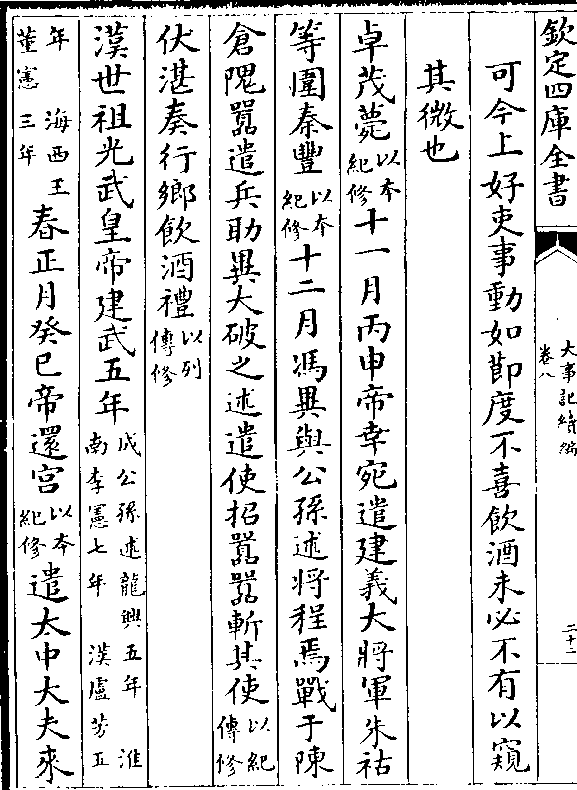 欽定四庫全書
大事記續編
卷八
二十二
可今上好吏事動如節度不喜飲酒未必不有以窺
其微也
卓茂薨以本紀修十一月丙申帝幸宛遣建義大將軍朱祜
等圍秦豐以本紀修十二月馮異與公孫述將程焉戰于陳
倉隗囂遣兵助異大破之述遣使招囂囂斬其使以紀傳修
伏湛奏行鄉飲酒禮以列傳修
漢世祖光武皇帝建武五年成公孫述龍興五年 淮南李憲七年 漢盧芳五
年 海西王董憲三年春正月癸巳帝還宮以本紀修遣太中大夫來